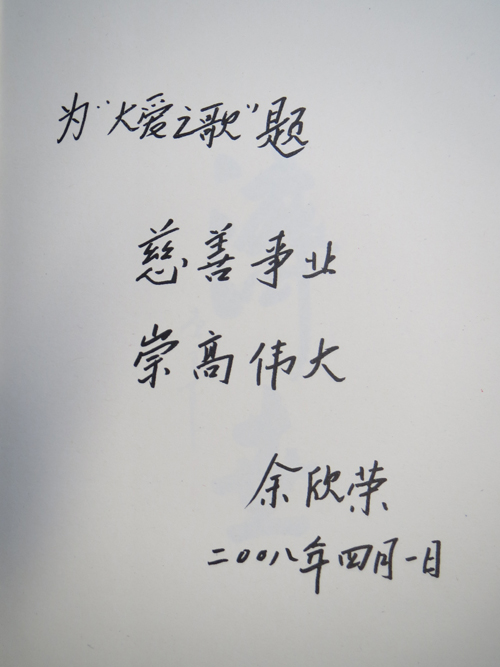 为“大爱之歌”题
慈善事业
崇高伟大
余欣荣
二〇〇八年四月一日